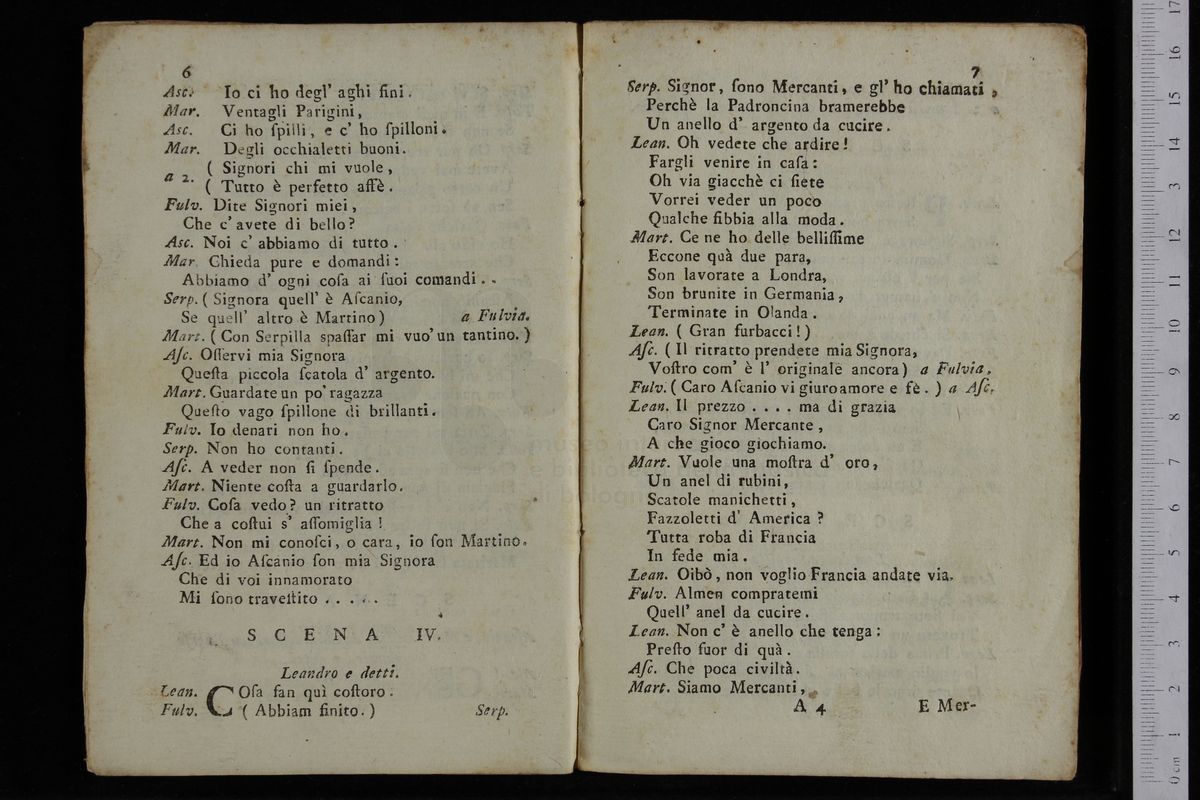 6
Asc. Io ci ho degl' aghi fini.
Mar. Ventagli Parigini,
Asc. Ci ho ſpilli, e c' ho ſpilloni.
Mar. Degli occhialetti buoni.
a 2. ( Signori chi mi vuole,
( Tutto è perfetto affè.
Fulv. Dite Signori miei,
Che c' avete di bello?
Asc. Noi c' abbiamo di tutto.
Mar. Chieda pure e domandi:
Abbiamo d' ogni coſa ai ſuoi comandi..
Serp. ( Signora quell' è Aſcanio,
Se quell' altro è Martino) a Fulvia.
Mart. ( Con Serpilla ſpaſſar mi vuo' un tantino. )
Aſc. Oſſervi mia Signora
Queſta piccola ſcatola d' argento.
Mart. Guardate un po' ragazza
Queſto vago ſpillone di brillanti.
Fulv. Io denari non ho.
Serp. Non ho contanti.
Aſc. A veder non ſi ſpende.
Mart. Niente coſta a guardarlo.
Fulv. Coſa vedo? un ritratto
Che a coſtui s' aſſomiglia!
Mart. Non mi conoſci, o cara, io ſon Martino.
Aſc. Ed io Aſcanio ſon mia Signora
Che di voi innamorato
Mi ſono traveſtito .....
SCENA IV.
Leandro e detti.
Lean. COſa fan quì coſtoro.
Fulv. ( Abbiam finito. ) Serp.
7
Serp. Signor, ſono Mercanti, e gl' ho chiamati,
Perchè la Padroncina bramerebbe
Un anello d' argento da cucire.
Lean. Oh vedete che ardire!
Fargli venire in caſa:
Oh via giacchè ci ſiete
Vorrei veder un poco
Qualche fibbia alla moda.
Mart. Ce ne ho delle belliſſime
Eccone quà due para,
Son lavorate a Londra,
Son brunite in Germania,
Terminate in Olanda.
Lean. ( Gran furbacci!)
Aſc. ( Il ritratto prendete mia Signora,
Voſtro com' è l' originale ancora) a Fulvia.
Fulv. ( Caro Aſcanio vi giuro amore e fè. ) a Aſc.
Lean. Il prezzo .... ma di grazia
Caro Signor Mercante,
A che gioco giochiamo.
Mart. Vuole una moſtra d' oro,
Un anel di rubini,
Scatole manichetti,
Fazzoletti d' America?
Tutta roba di Francia
In fede mia.
Lean. Oibò, non voglio Francia andate via.
Fulv. Almen compratemi
Quell' anel da cucire.
Lean. Non c' è anello che tenga:
Preſto fuor di quà.
Aſc. Che poca civiltà.
Mart. Siamo Mercanti,
A 4 E Mer-